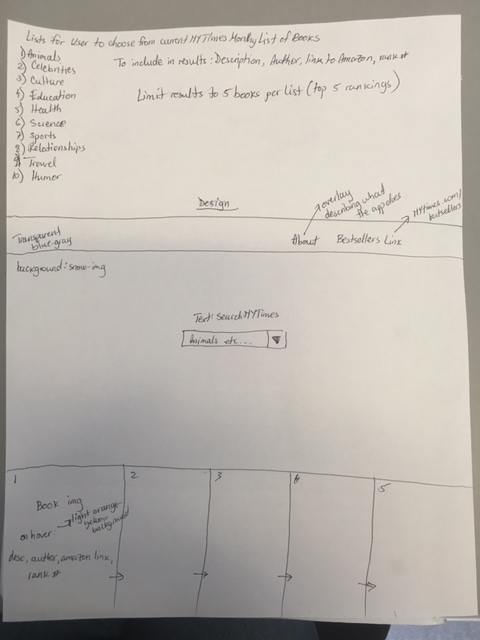 Lists for User to choose from current NYTimes Monthly List of Books
1) Animals
2) Celebrities
3) Culture
4) Education
5) Health
6) Science
7) Sports
8) Relationships
9) Travel
10) Humor
To include in results: Description, Author, link to Amazon, rank #
Limit results to 5 books per list (top 5 rankings)
Design
overlay
describing what
the app does
NYtimes.com/
bestsellers
Transparent
blue-gray
About
Bestsellers Link
background: snow-img
Text: Search NYTimes
Animals etc...
1
2
3
4
5
Book img
on hover
light orange-
yellow
background
desc, author, amazon link,
rank #